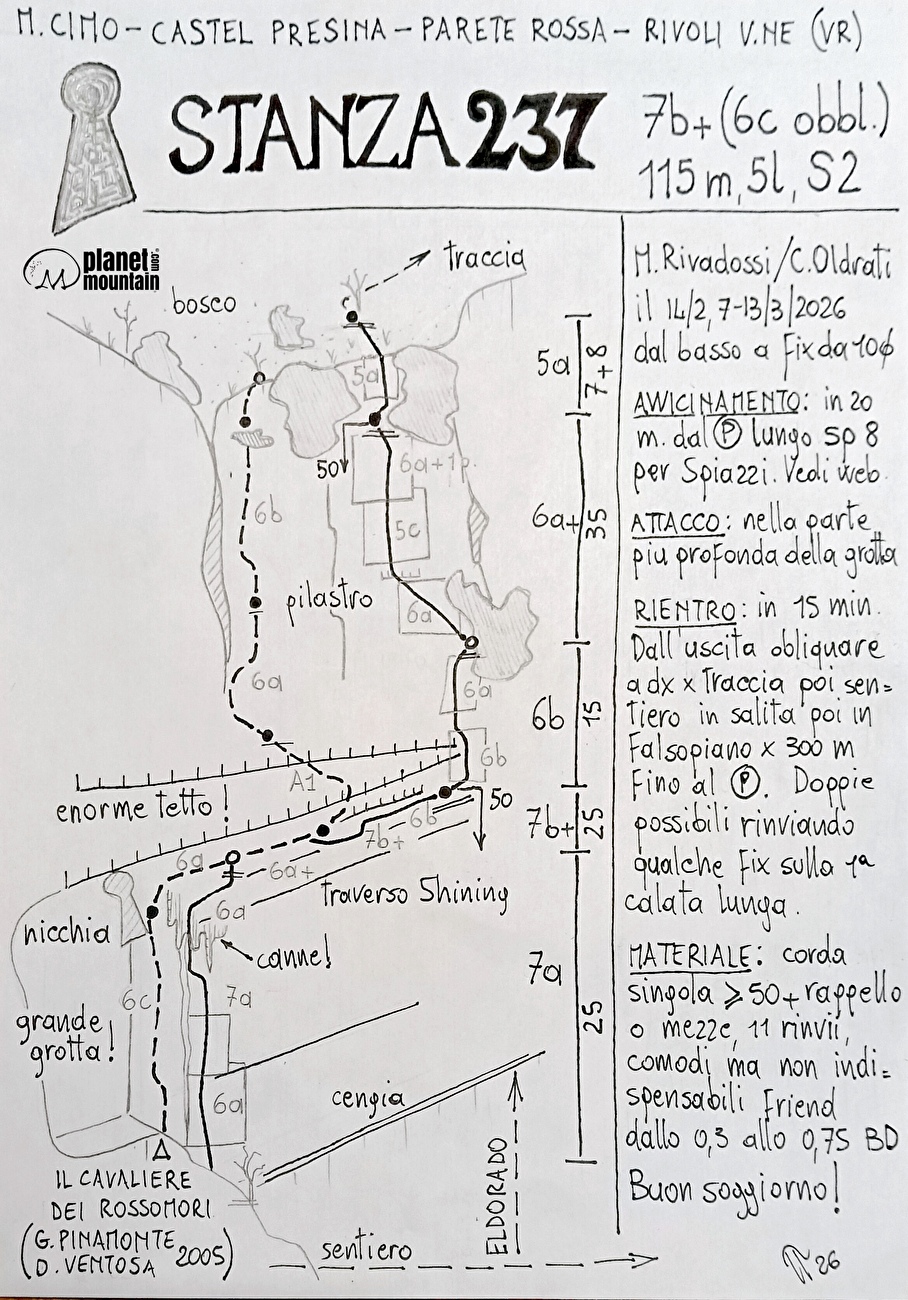 M. CIMO – CASTEL PRESINA – PARETE ROSSA – RIVOLI V.NE (VR)
STANZA 237
7b+ (6c obbl.)
115 m, 5l, S2
planet
mountain
.COM
bosco
traccia
5a
50
6a+1p.
6b
5c
pilastro
6a
6a
6a
6b
A1
enorme tetto!
50
6b
7b+
6a
6a+
traverso Shining
6a
nicchia
canne!
6c
7a
grande
grotta!
6a
cengia
IL CAVALIERE
DEI ROSSOMORI
(G. PINAMONTE
D. VENTOSA 2005)
ELDORADO
sentiero
5a
7+8
6a+
35
6b
15
7b+
25
7a
25
M. Rivadossi/C. Oldrati
il 14/2, 7-13/3/2026
dal basso a Fix da 10ϕ
AVVICINAMENTO: in 20
m. dal Ⓟ lungo sp 8
per Spiazzi. Vedi web.
ATTACCO: nella parte
piu profonda della grotta
RIENTRO: in 15 min.
Dall'uscita obliquare
a dx x Traccia poi sen=
tiero in salita poi in
Falsopiano x 300 m
Fino al Ⓟ. Doppie
possibili rinviando
qualche Fix sulla 1ª
calata lunga.
MATERIALE: corda
singola ⩾ 50 + rappello
o mezze, 11 rinvii,
comodi ma non indi=
spensabili Friend
dallo 0,3 allo 0,75 BD
Buon soggiorno!
26